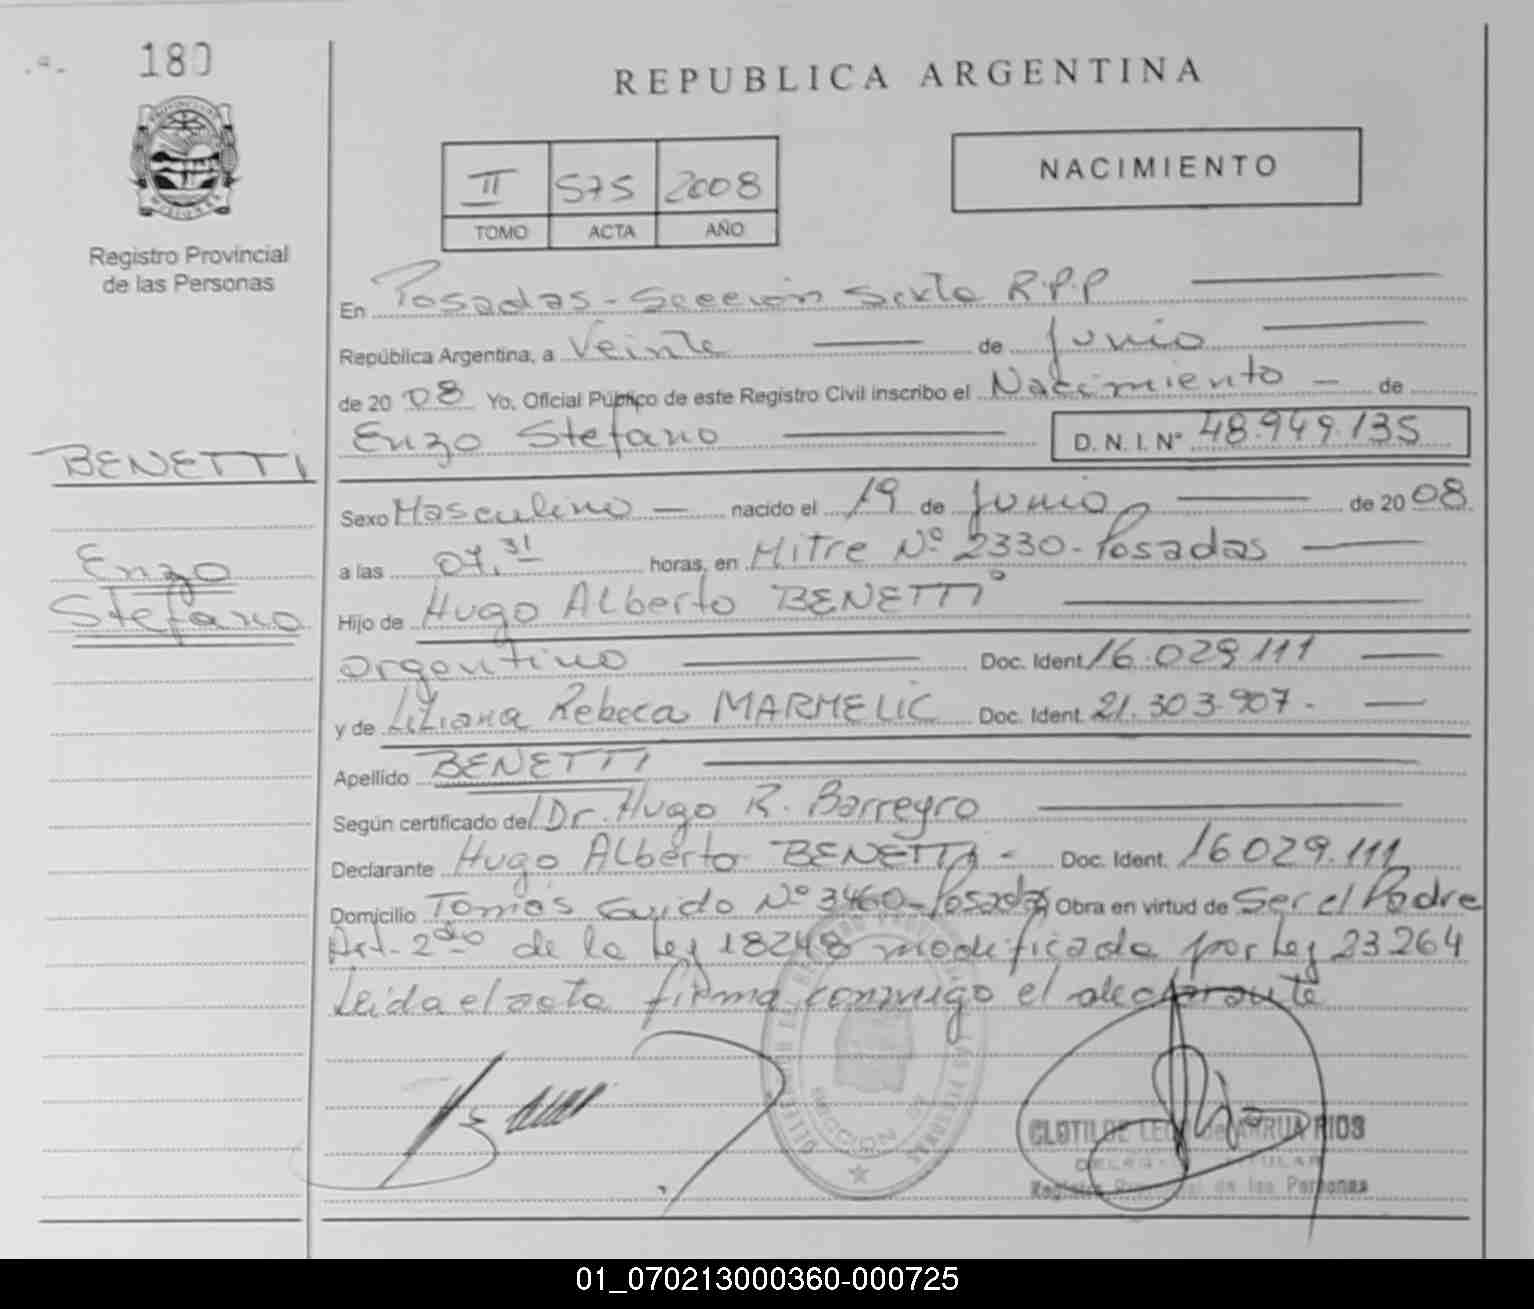 180
Registro Provincial
de las Personas
REPUBLICA ARGENTINA
II 575 2008
TOMO ACTA AÑO
NACIMIENTO
En Posadas - Sección Sexta R.P.P
República Argentina, a Veinte de Junio
de 2008 Yo, Oficial Público de este Registro Civil inscribo el Nacimiento - de
Enzo Stefano D. N. I. N° 48.949.135
BENETTI
Enzo
Stefano
Sexo Masculino - nacido el 19 de Junio de 2008
a las 07,31 horas, en Mitre Nº 2330 - Posadas
Hijo de Hugo Alberto BENETTI
argentino Doc. Ident. 16.029.111
y de Liliana Rebeca MARMELIC Doc. Ident. 21.303.907.-
Apellido BENETTI
Según certificado del Dr. Hugo R. Barreyro
Declarante Hugo Alberto BENETTI - Doc. Ident. 16029.111
Domicilio Tomás Guido Nº 3460 - Posadas, Obra en virtud de Ser el Padre
Art. 2do de la Ley 18248 modificada por Ley 23264
Leida el acta firma conmigo el declarante
SECCION
CLOTILDE de ARRUA RIOS
TITULAR
Registro Provincial de las Personas
01_070213000360-000725